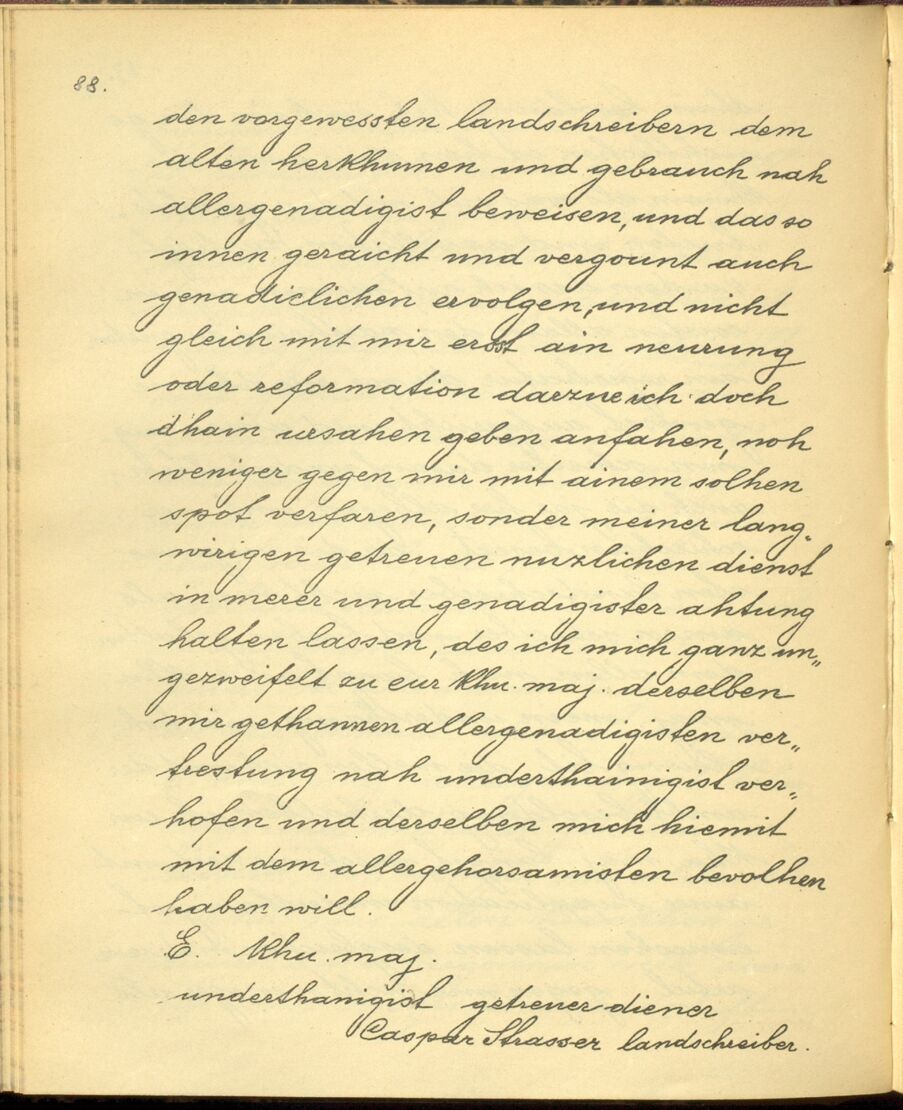 88.
den vorgewessten landschreibern dem
alten herkhumen und gebrauch nah
allergenadigist beweisen, und das so
innen geraicht und vergount auch
genadiclichen ervolgen, und nicht
gleich mit mir erst ain neurung
oder reformation darzue ich doch
dhain ursahen geben anfahen, noh
weniger gegen mir mit ainem solhen
spot verfaren, sonder meiner lang„
wirigen getreuen nuzlichen dienst
in merer und genadigister ahtung
halten lassen, des ich mich ganz un„
gezweifelt zu eur khu. maj. derselben
mir gethannen allergenadigisten ver„
trestung nah underthainigist ver„
hofen und derselben mich hiemit
mit dem allergehorsamisten bevolhen
haben will.
E. khu. maj.
underthanigist getreuer diener
Caspar Strasser landschreiber.